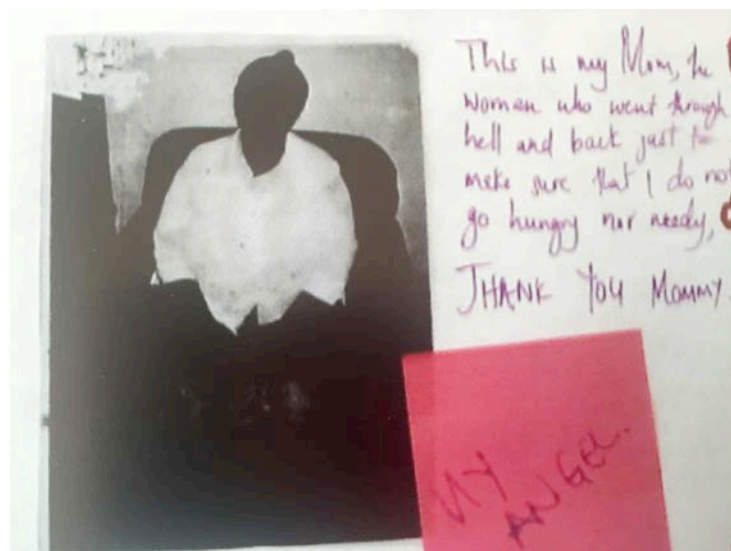 This is my Mom, the
women who went through
hell and back just to
make sure that I do not
go hungry nor needy,
THANK YOU MOMMY.
MY
ANGEL.